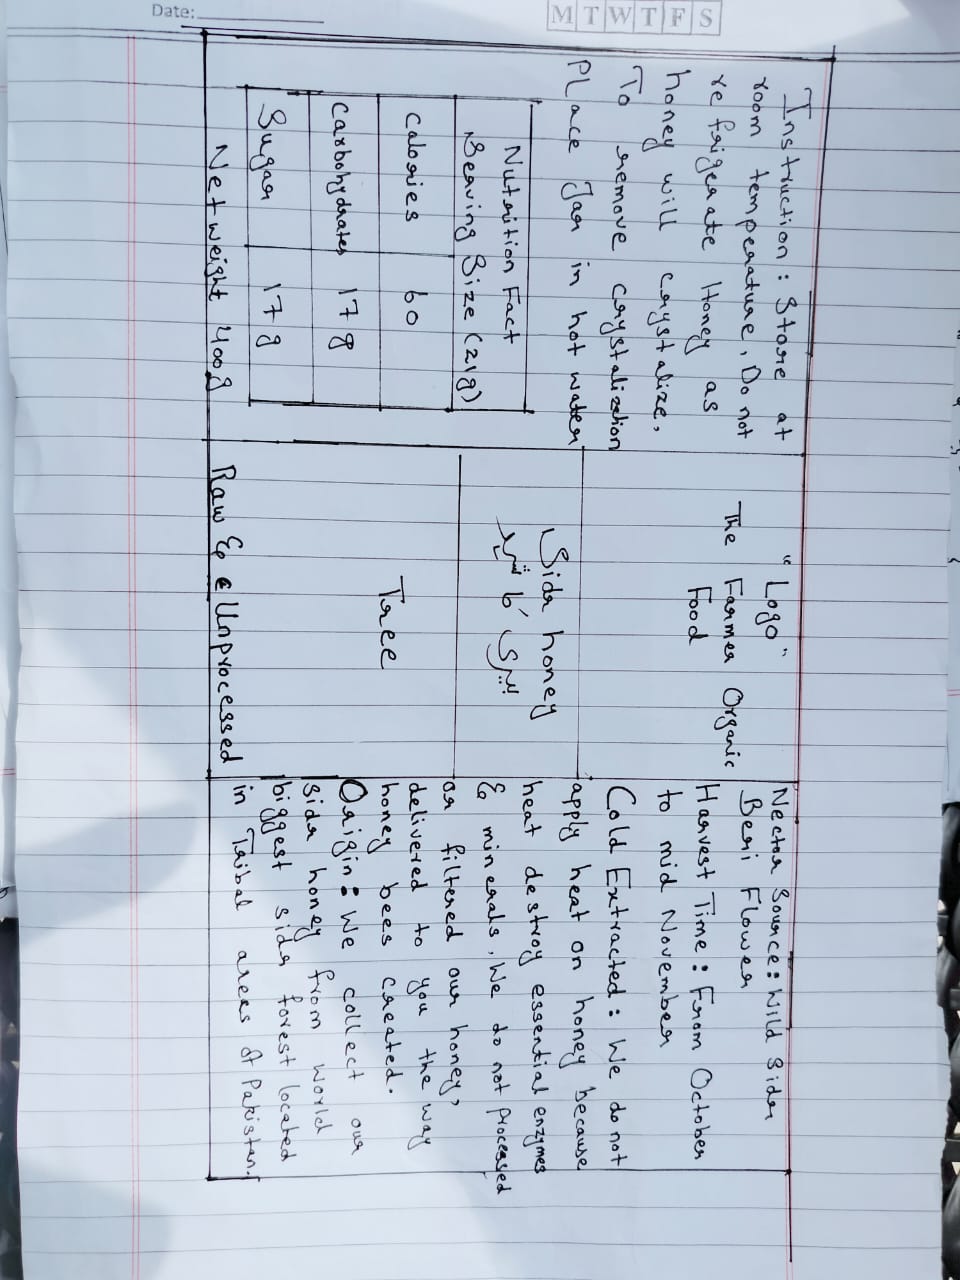 Instruction: Store at
room temperature. Do not
refrigerate Honey as
honey will crystalize.
To remove crystalization
Place Jar in hot water
Nutrition Fact
Serving Size (21g)
Calories 60
Carbohydrates 17 g
Sugar 17 g
Net weight 400g
"Logo"
The Farmer Organic
Food
Sidr honey
بیری کا شہد
Tree
Raw & Unprocessed
Nector Source: Wild Sidr
Beri Flower
Harvest Time: From October
to mid November
Cold Extracted: We do not
apply heat on honey because
heat destroy essential enzymes
& minerals. We do not processed
or filtered our honey,
delivered to you the way
honey bees created.
Origin: We collect our
sidr honey from world
biggest sidr forest located
in Tribal areas of Pakistan.
M T W T F S
Date: